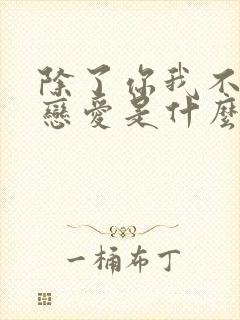 除了你我不
戀愛是什麼
一桶布丁